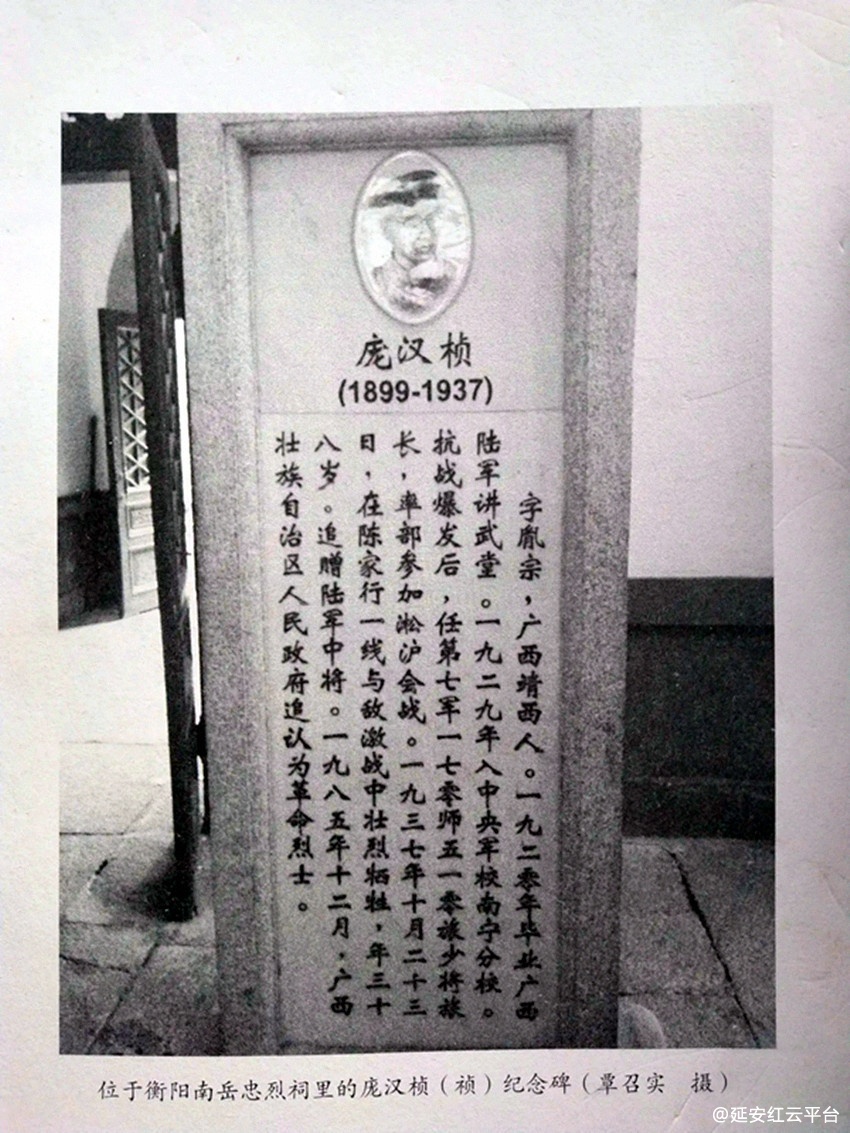 庞汉桢
(1899-1937)
字胤宗，广西靖西人。一九二零年毕业广西
陆军讲武堂。一九二九年入中央军校南宁分校。
抗战爆发后，任第七军一七零师五一零旅少将旅
长，率部参加淞沪会战。一九三七年十月二十三
日，在陈家行一线与敌激战中壮烈牺牲，年三十
八岁。追赠陆军中将。一九八五年十二月，广西
壮族自治区人民政府追认为革命烈士。
位于衡阳南岳忠烈祠里的庞汉桢（祯）纪念碑（覃召实 摄）
@延安红云平台